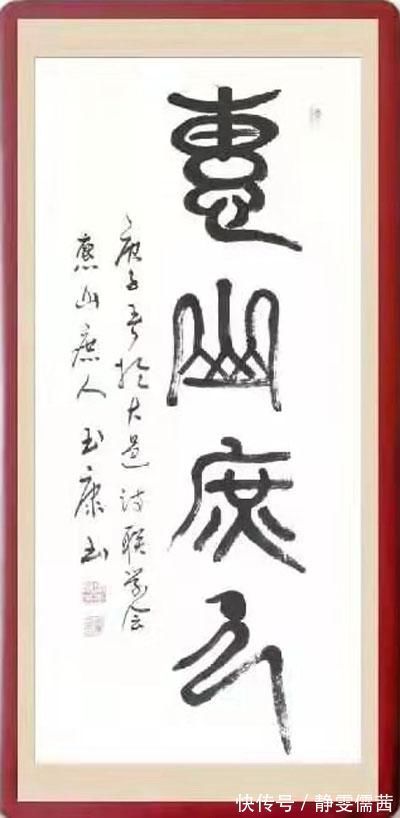 惠山庶人
庚子春於大道诗联学会
惠山庶人玉康书
快传号 / 静雯儒茜